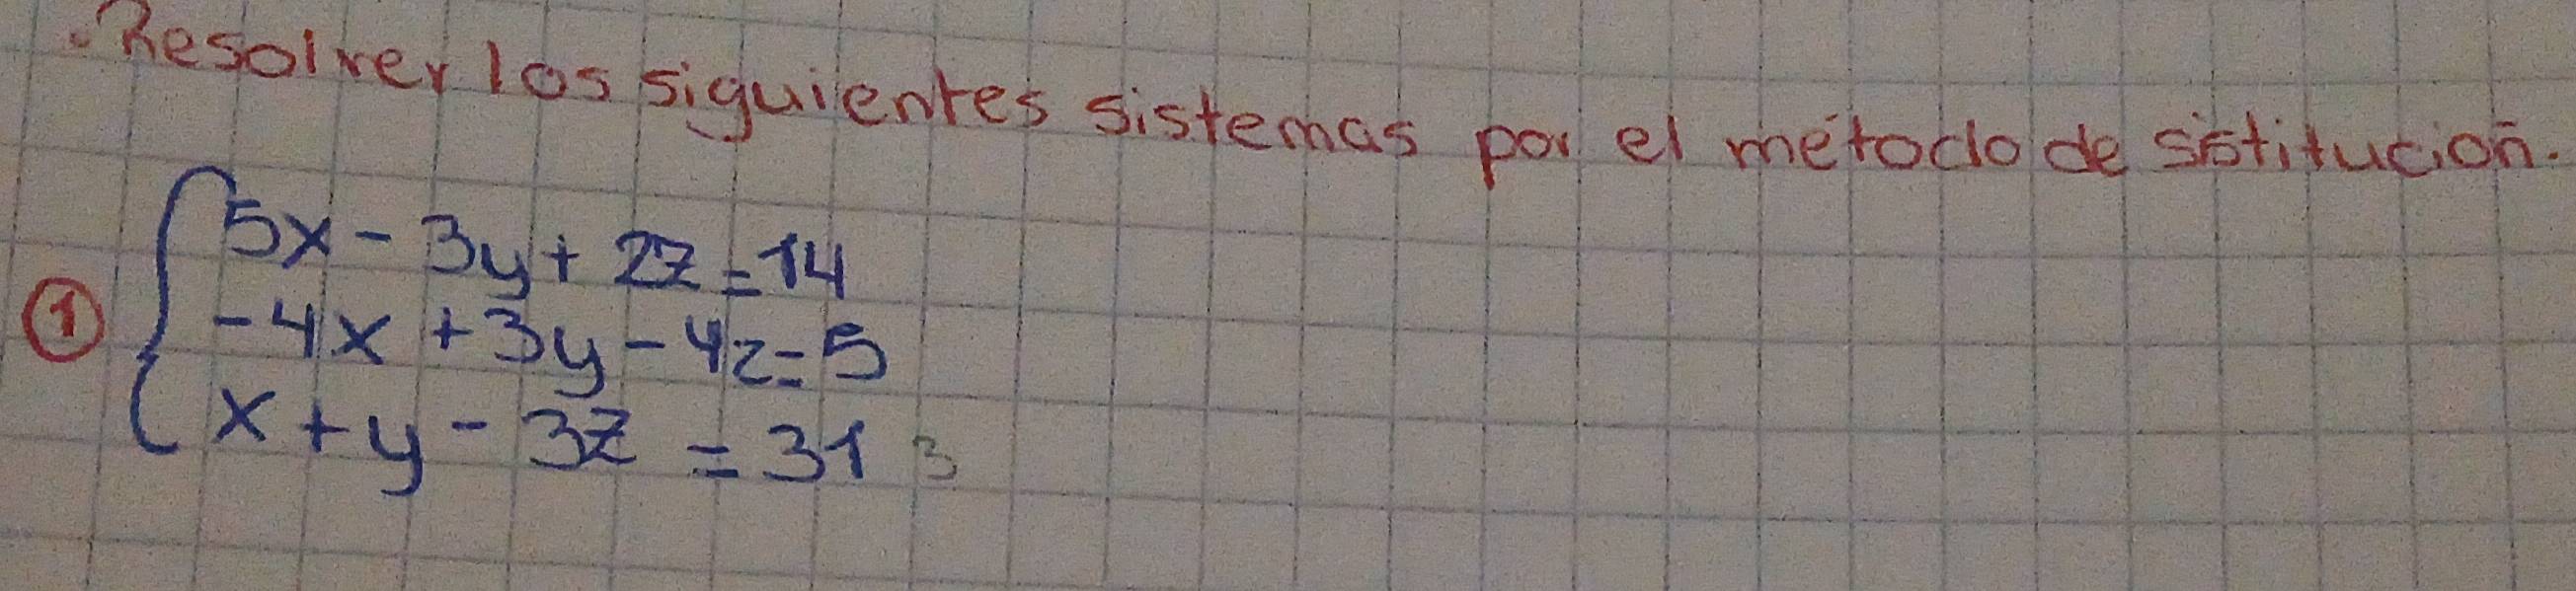 . Resolver los siguientes sistemas por el método de sistitución.
5x - 3y + 2z = 14
① -4x + 3y - 4z = 5
x + y - 3z = 31 3